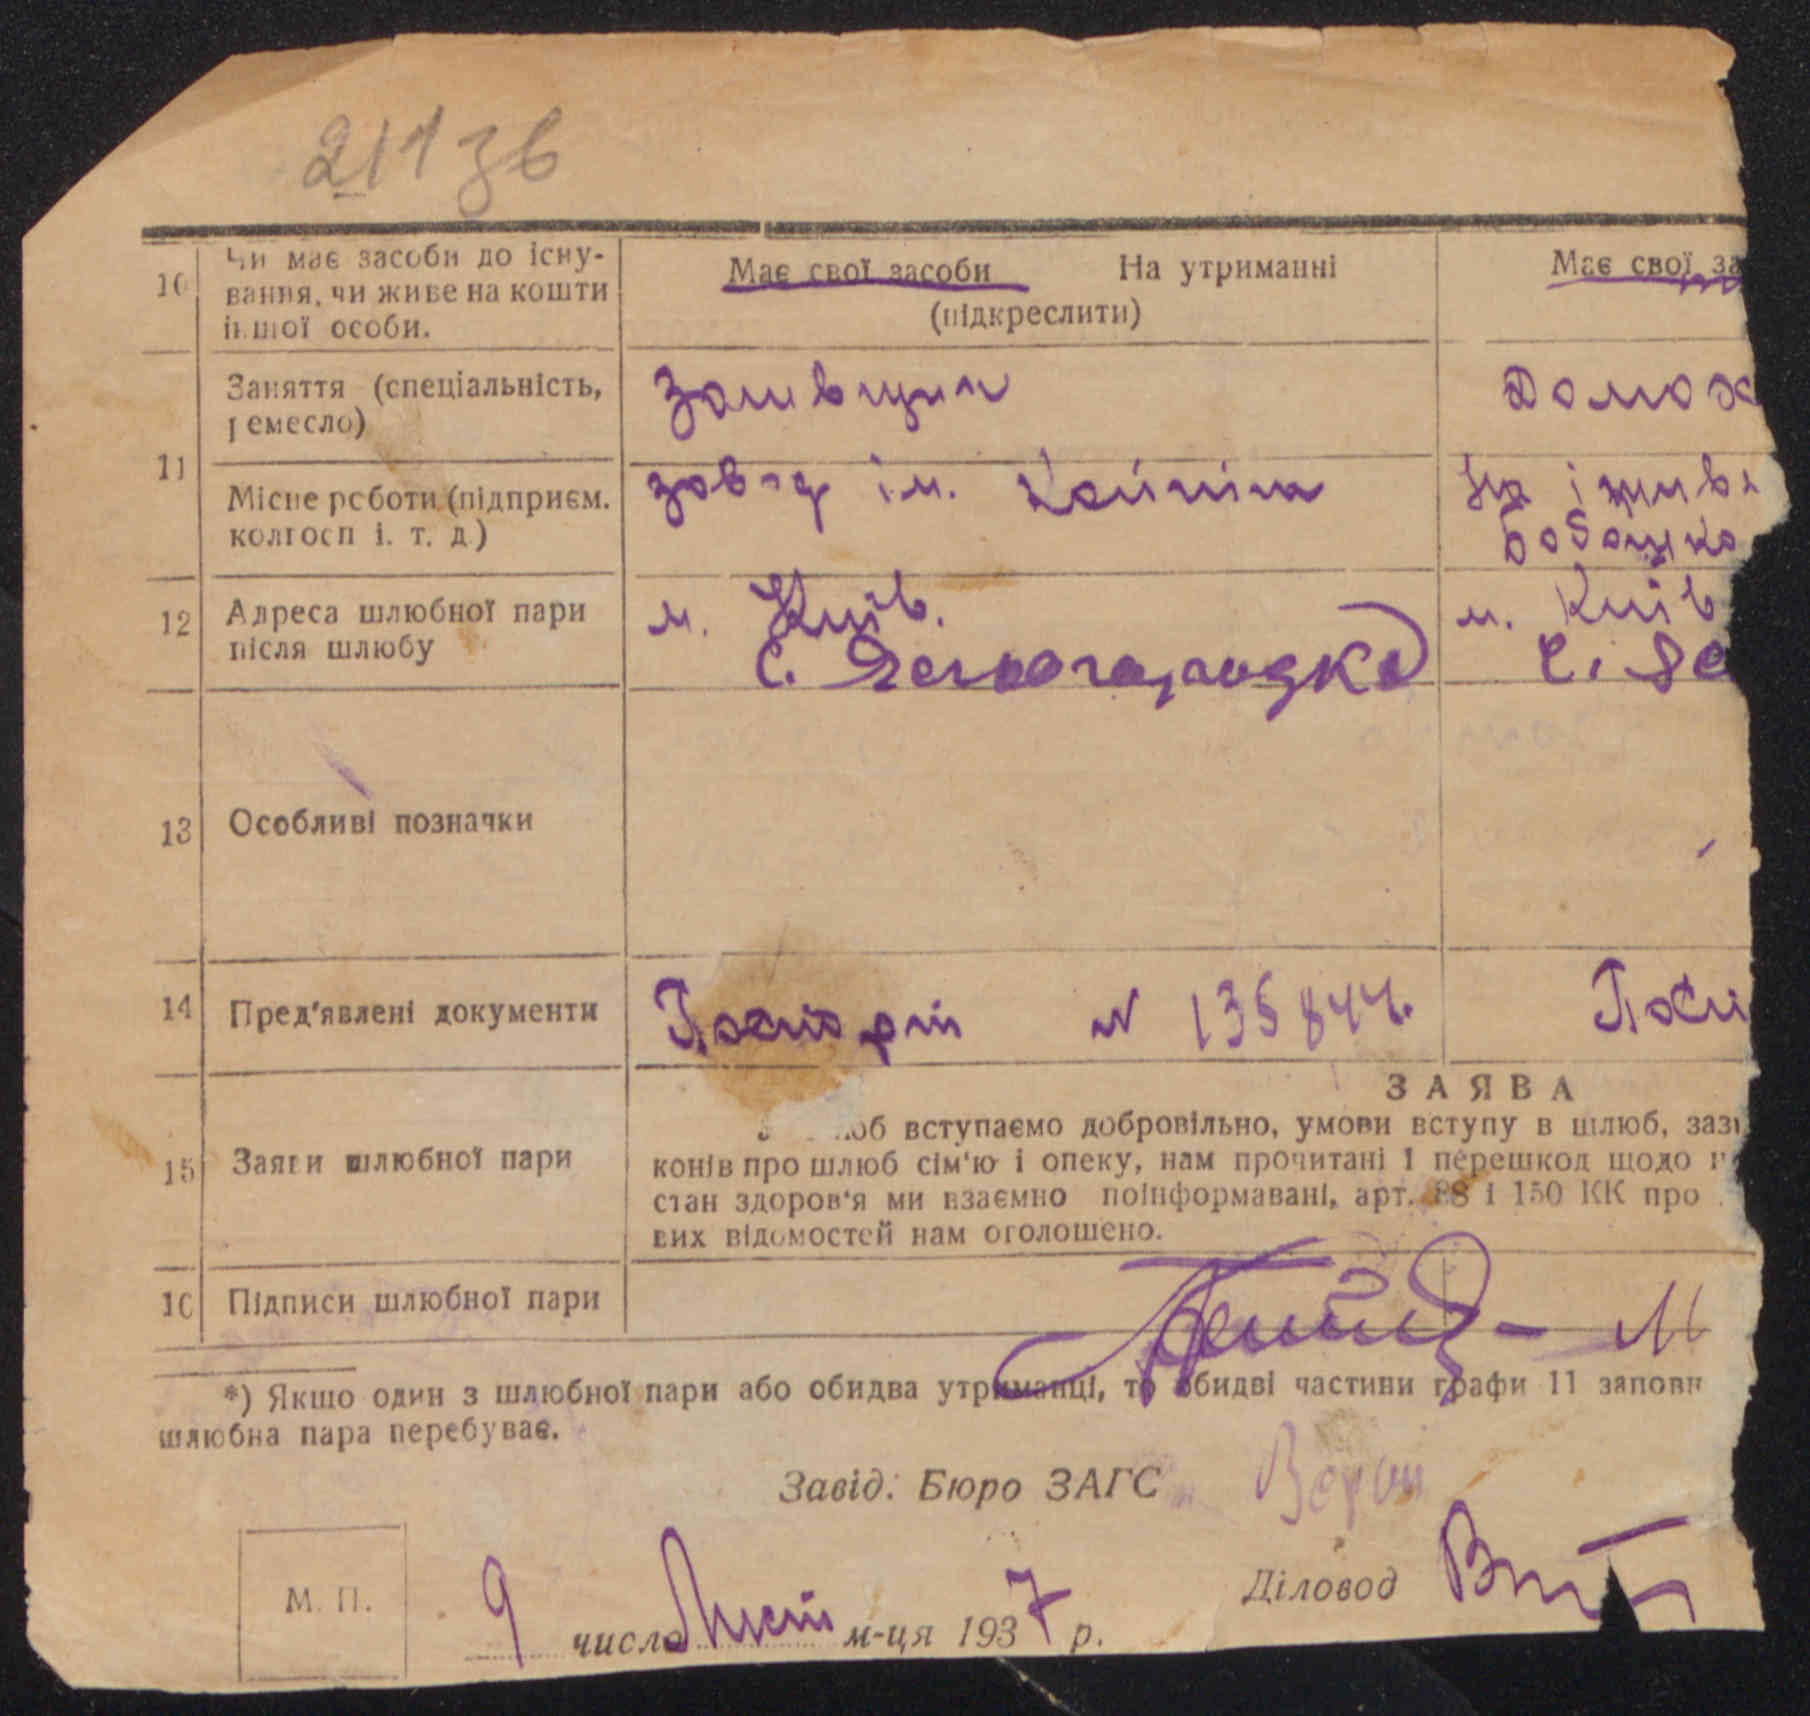 10
Чи має засоби до існу-
вання, чи живе на кошти
іншої особи.
Має свої засоби На утриманні
(підкреслити)
Має свої за
11
Заняття (спеціальність,
ремесло)
Домож
Місце роботи (підприєм.
колгосп і. т. д.)
завод ім.
12
Адреса шлюбної пари
після шлюбу
м. Київ.
с.
м. Київ
с.
13
Особливі позначки
14
Пред'явлені документи
Паспорт N 135844.
Пасп
15
Заяви шлюбної пари
ЗАЯВА
об вступаємо добровільно, умови вступу в шлюб, заз
конів про шлюб сім'ю і опеку, нам прочитані і перешкод щодо
стан здоров'я ми взаємно поінформавані, арт. 88 і 150 КК про
вих відомостей нам оголошено.
16
Підписи шлюбної пари
*) Якщо один з шлюбної пари або обидва утриманці, то обидві частини графи 11 заповн
шлюбна пара перебуває.
Завід. Бюро ЗАГС
Діловод
М. П.
9 число Лист м-ця 1937 р.